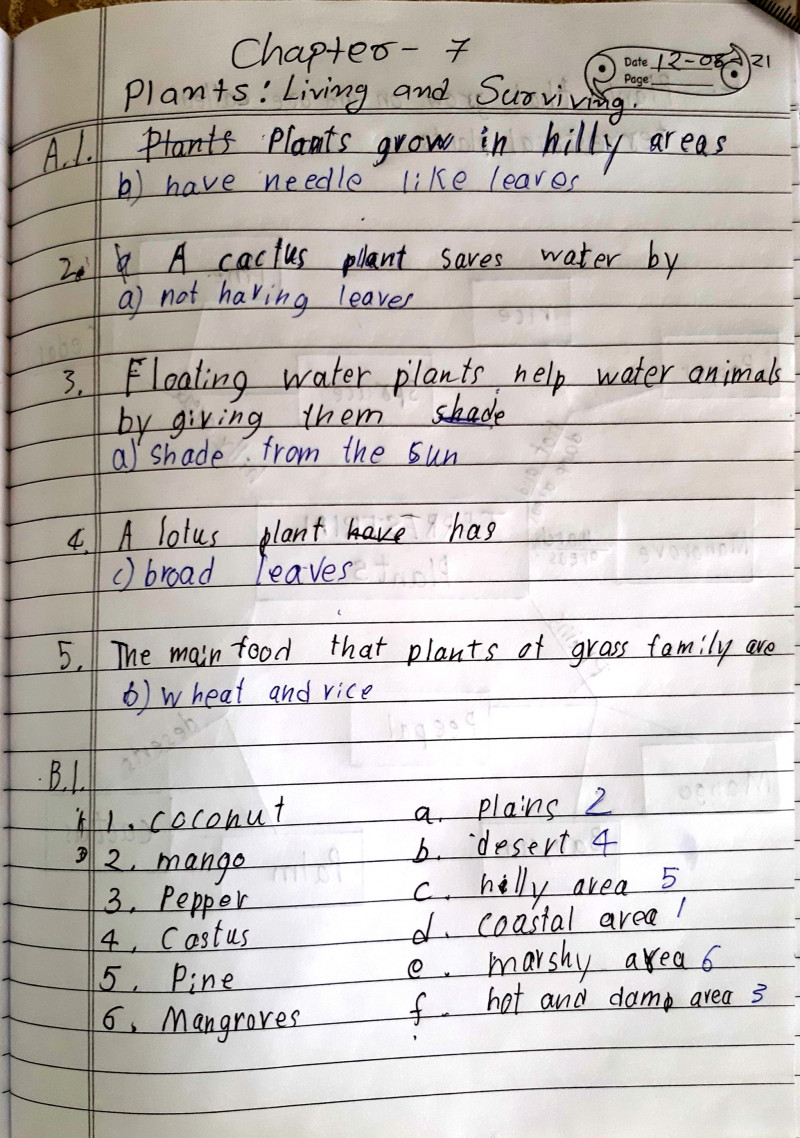 Chapter - 7
Date 12-08-21
Page
Plants: Living and Surviving.
A.1. Plants Plants grow in hilly areas
b) have needle like leaves
2. A cactus plant saves water by
a) not having leaves
3. Floating water plants help water animals
by giving them shade
a) shade from the sun
4. A lotus plant have has
c) broad leaves
5. The main food that plants of grass family are
b) wheat and rice
B.1.
1. coconut a. plains 2
2. mango b. desert 4
3. Pepper c. hilly area 5
4. Castus d. coastal area 1
5. Pine e. marshy area 6
6. Mangroves f. hot and damp area 3